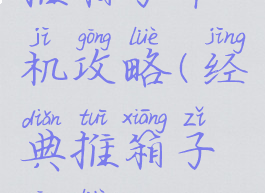 jī gōng lüè jīng
机攻略(经
diǎn tuī xiāng zǐ
典推箱子